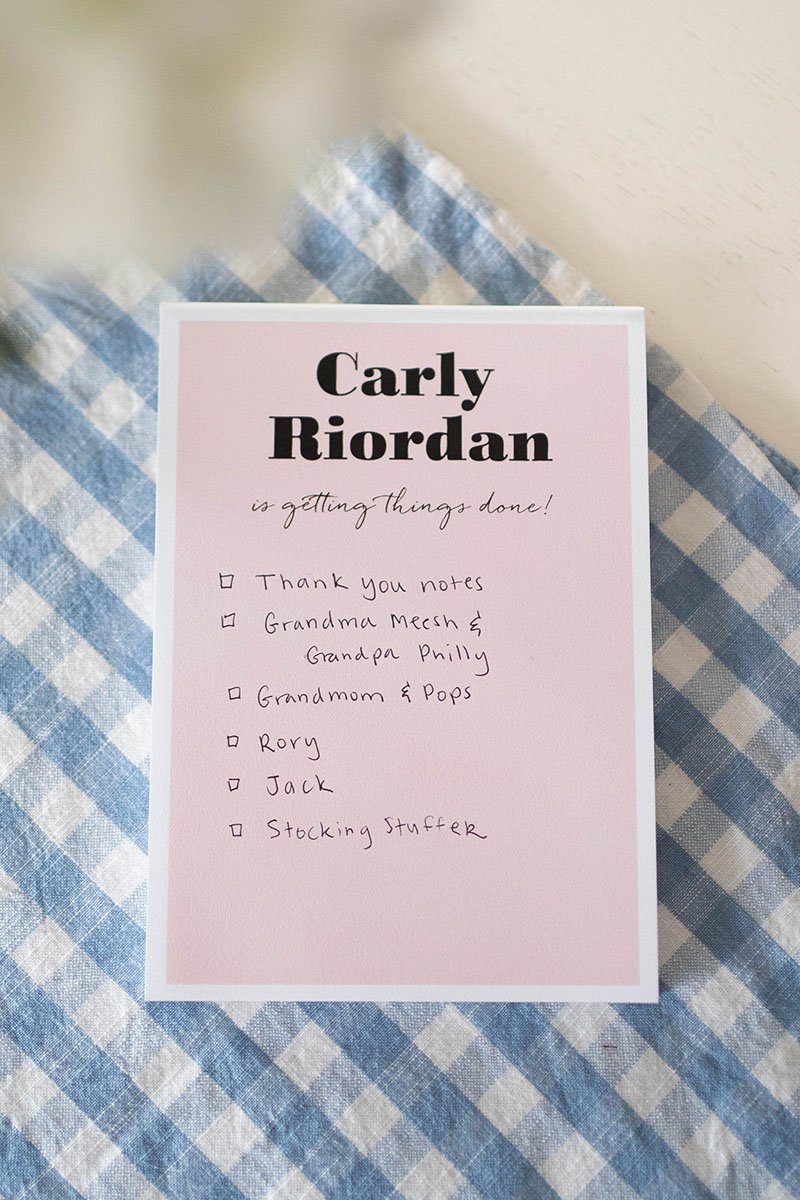 Carly
Riordan
is getting things done!
Thank you notes
Grandma Meesh &
Grandpa Philly
Grandmom & Pops
Rory
Jack
Stocking Stuffer